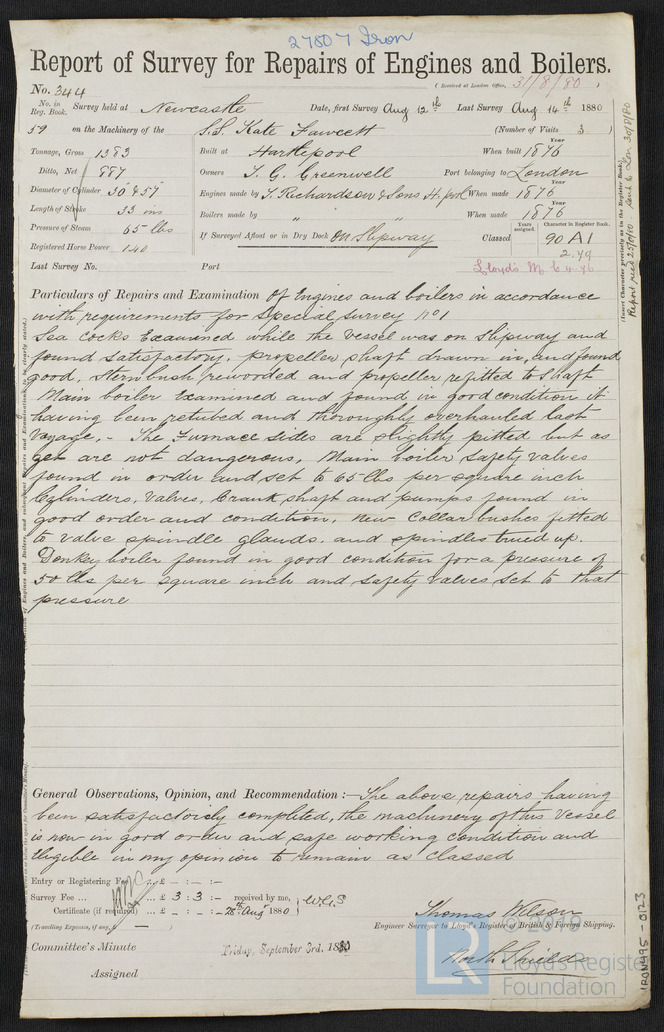 27807 Iron
Report of Survey for Repairs of Engines and Boilers.
(Received at London Office, 31/8/80)
No. 344
No. in Reg. Book. Survey held at Newcastle Date, first Survey Aug 12th Last Survey Aug 14th 1880
59 on the Machinery of the S.S. Kate Fawcett (Number of Visits 3)
Tonnage, Gross 1383 Built at Hartlepool When built Year 1876
Ditto, Net 887 Owners T. G. Greenwell Port belonging to London
Diameter of Cylinder 30 & 57 Engines made by T. Richardson & Sons H. pool When made Year 1876
Length of Stroke 33 ins Boilers made by " " When made Year 1876
Pressure of Steam 65 lbs If Surveyed Afloat or in Dry Dock On Slipway Classed Years assigned. Character in Register Book. 90 A1
Registered Horse Power 140 2.79
Last Survey No. Port Lloyd's M C 4-76
Particulars of Repairs and Examination of Engines and boilers in accordance
with requirements for Special Survey No 1
Sea cocks Examined while the vessel was on Slipway and
found satisfactory, propeller shaft drawn in, and found
good, stern bush rewooded and propeller refitted to shaft
Main boiler Examined and found in good condition it
having been retubed and thoroughly overhauled last
Voyage, - The Furnace sides are slightly pitted but as
yet are not dangerous, Main boiler safety valves
found in order and set to 65 lbs per square inch
Cylinders, Valves, Crank shaft and pumps found in
good order and condition, new Collar bushes fitted
to valve spindle glands. and spindles trued up.
Donkey boiler found in good condition for a pressure of
50 lbs per square inch and safety valves set to that
pressure
General Observations, Opinion, and Recommendation :— The above repairs having
been satisfactorily completed, the machinery of this Vessel
is now in good order and safe working condition and
Eligible in my opinion to remain as classed
Entry or Registering Fee ... £ - : - : -
Survey Fee ... ... £ 3 : 3 : - received by me,
Certificate (if required) ... £ - : - : - 28th Aug 1880 W.G.S
(Travelling Expenses, if any, — )
Thomas Wilson
Engineer Surveyor to Lloyd's Register of British & Foreign Shipping.
North Shields
Committee's Minute Friday, September 3rd. 1880
Assigned
(Insert Character precisely as in the Register Book.)
Report recd 25/8/80 Sent to Lon 30/8/80
IRON495-0123
© 2019
LR
Lloyd's Register
Foundation